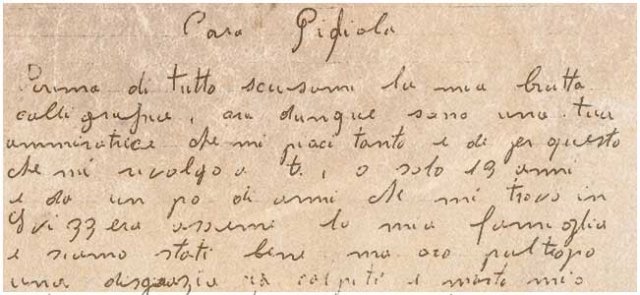 Cara Pidiola
Prima di tutto scusami la mia brutta
calligrafia, ora dunque sono una tua
ammiratrice che mi piaci tanto e di per questo
che mi rivolgo a t. , o solo 19 anni
e da un po di anni che mi trovo in
era assieme la mia famiglia
e siamo stati bene ma ora pultropo
una disgrazia ci colpiti è morto mio